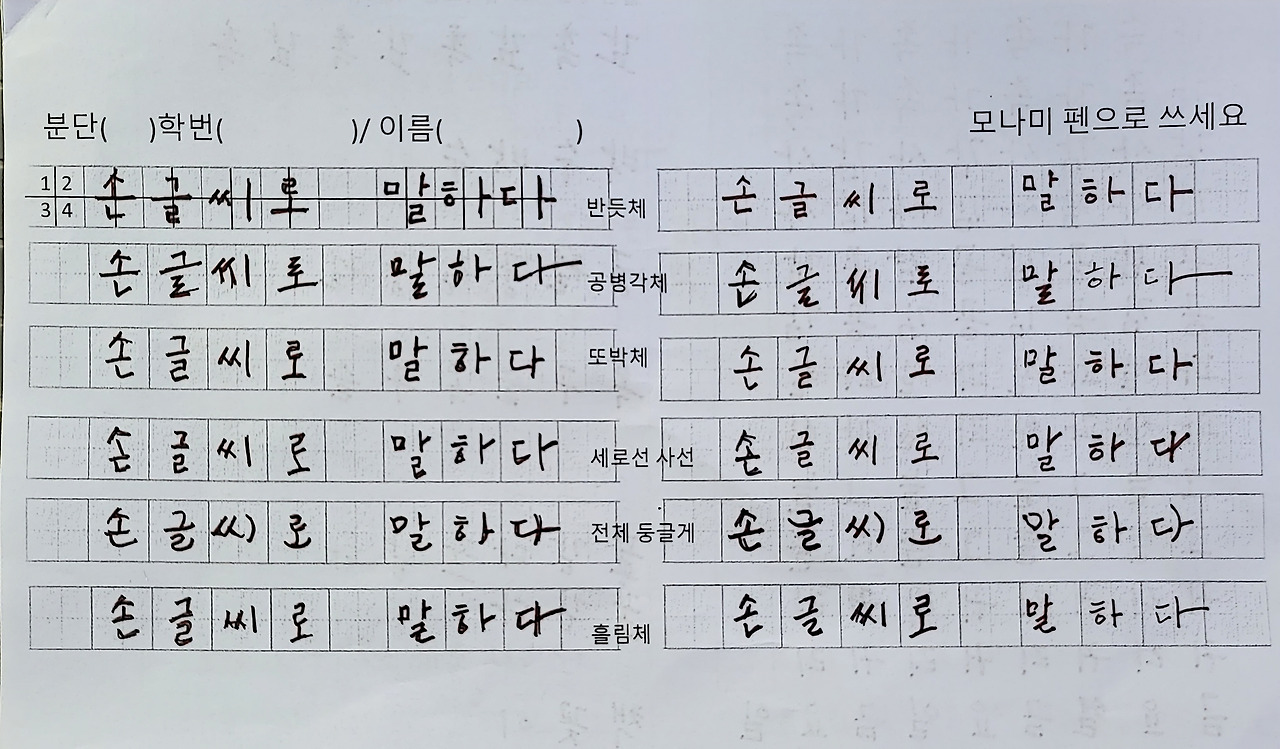 분단( )학번( )/ 이름( ) 모나미 펜으로 쓰세요
1 2 손글씨로 말하다 반듯체 손글씨로 말하다
3 4
손글씨로 말하다 공병각체 손글씨로 말하다
손글씨로 말하다 또박체 손글씨로 말하다
손글씨로 말하다 세로선 사선 손글씨로 말하다
손글씨로 말하다 전체 둥글게 손글씨로 말하다
손글씨로 말하다 흘림체 손글씨로 말하다